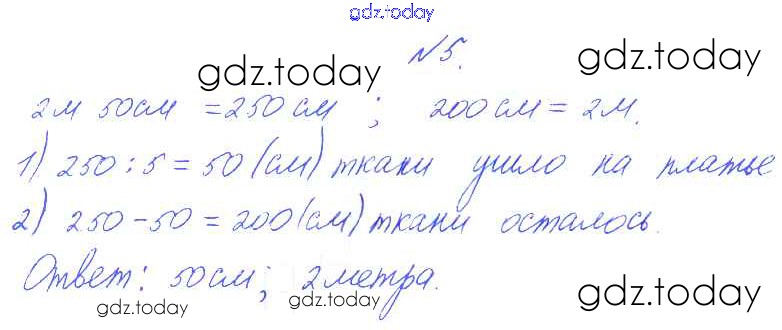 gdz.today
№5.
gdz.today gdz.today
2м 50см = 250см ; 200см = 2м.
1) 250 : 5 = 50 (см) ткани ушло на платье
2) 250 - 50 = 200 (см) ткани осталось.
Ответ: 50см; 2метра.
gdz.today gdz.today gdz.today